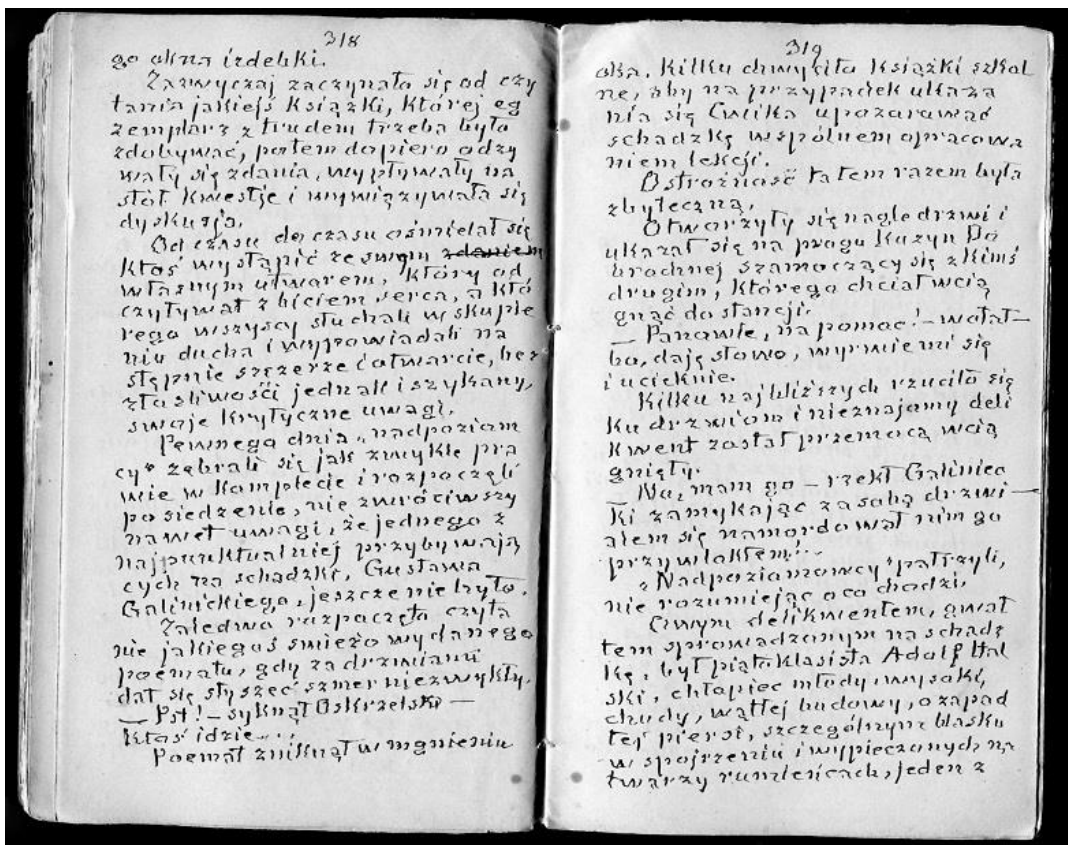 318
go okna izdebki.
Zazwyczaj zaczynało się od czy
tania jakiejś książki, której eg
zemplarz z trudem trzeba było
zdobywać, potem dopiero odzy
wały się zdania, wypływały na
stół kwestje i wywiązywała się
dyskusja.
Od czasu do czasu ośmielał się
ktoś wystąpić ze swym zdaniem
własnym utworem, który od
czytywał z biciem serca, a któ
rego wszyscy słuchali w skupie
niu ducha i wypowiadali na
stępnie szczerze i otwarcie, bez
złośliwości jednak i szykany,
swoje krytyczne uwagi.
Pewnego dnia „nadpoziom
cy" zebrali się jak zwykle pra
wie w komplecie i rozpoczęli
posiedzenie, nie zwróciwszy
nawet uwagi, że jednego z
najpunktualniej przybywają
cych na schadzki, Gustawa
Galinickiego, jeszcze nie było.
Zaledwo rozpoczęto czyta
nie jakiegoś świeżo wydanego
poematu, gdy za drzwiami
dał się słyszeć szmer niezwykły.
— Pst! – syknął Oskrzelski —
ktoś idzie...
Poemat zniknął w mgnieniu
319
oka. Kilku chwyciło książki szkol
ne, aby na przypadek ukaza
nia się Ćwika upozorować
schadzkę wspólnem opracowa
niem lekcji.
Ostrożność ta tem razem była
zbyteczną.
Otworzyły się nagle drzwi i
ukazał się na progu kuzyn Do
brochnej szamoczący się z kimś
drugim, którego chciał wcią
gnąć do stancji.
— Panowie, na pomoc! – wołał —
bo, daję słowo, wyrwie mi się
i ucieknie.
Kilku najbliższych rzuciło się
ku drzwiom i nieznajomy deli
kwent został przemocą wcią
gnięty.
— No, mam go – rzekł Galinic
ki zamykając za sobą drzwi —
alem się namordował nim go
przywlokłem...
„Nadpoziomowcy" patrzyli,
nie rozumiejąc o co chodzi.
Owym delikwentem, gwał
tem sprowadzonym na schadz
kę, był piątoklasista Adolf Hal
ski, chłopiec młody, wysoki,
chudy, wątłej budowy, o zapad
łej piersi, szczególnym blasku
w spojrzeniu i wypieczonych na
twarzy rumieńcach, jeden z